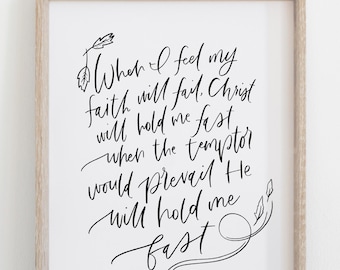 When I feel my
faith will fail, Christ
will hold me fast
when the temptor
would prevail He
will hold me
fast